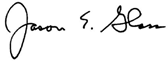 Jason E. Glass